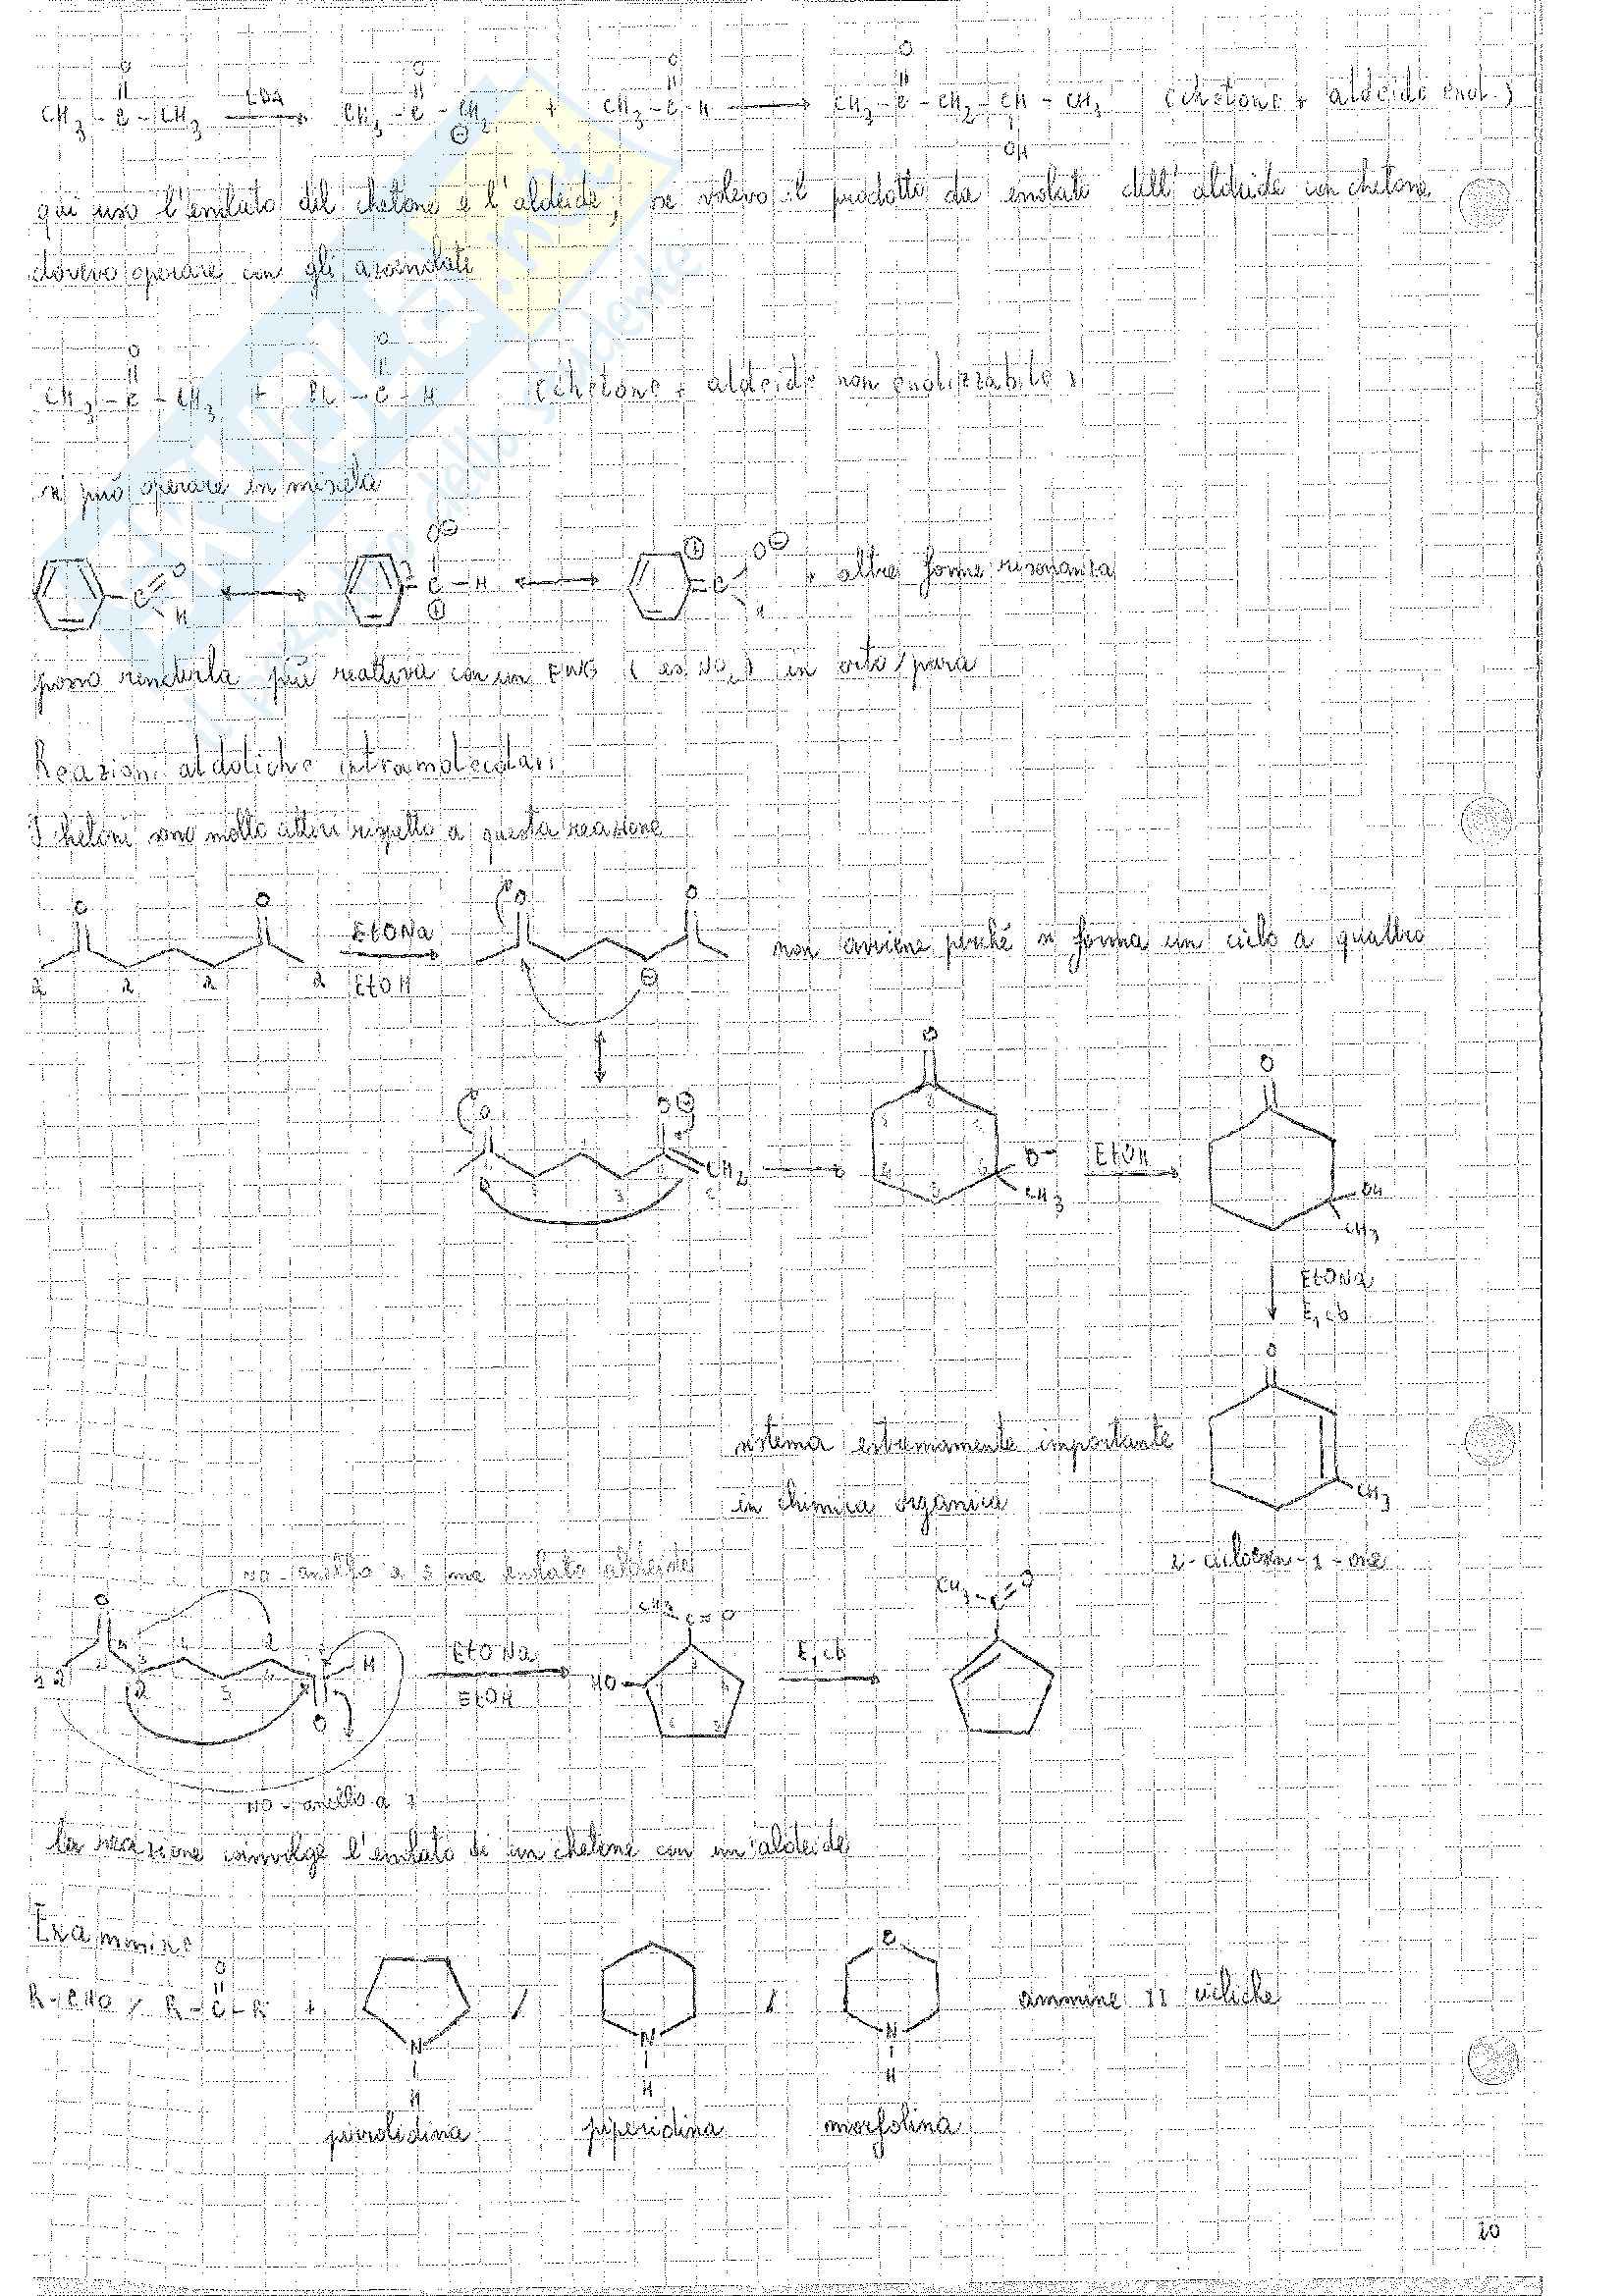 CH3 - C - CH3 LDA CH3 - C - CH2 + CH3 - C - H CH3 - C - CH2 - CH - CH3 (chetone + aldeide enol.)
O O O O
OH
qui uso l'enolato del chetone e l'aldeide, se volevo il prodotto da enolato dell'aldeide con chetone
dovevo operare con gli azaenolati
O O
CH3 - C - CH3 + Ph - C - H (chetone + aldeide non enolizzabile)
si può operare in miscela
C O H O⊖ C - H ⊕ ⊕ C O⊖ H + altre forme risonanza
posso renderla più reattiva con un EWG (es. NO2) in orto/para
Reazioni aldoliche intramolecolari
I chetoni sono molto attivi rispetto a questa reazione
O O EtONa O O non avviene perché si forma un ciclo a quattro
α α α α EtOH ⊖
O O⊖ CH2 O O- CH3 EtOH O OH CH3
EtONa
E1cb
O
sistema estremamente importante
in chimica organica
CH3
2-cicloesen-1-one
NO - anello a 5 ma enolato aldeide
O H O EtONa EtOH CH3 C = O HO E1cb CH3 - C = O
NO - anello a 7
la reazione coinvolge l'enolato di un chetone con un'aldeide
Enammine
O O
R - CHO / R - C - R + N H / N H / N H ammine II cicliche
pirrolidina piperidina morfolina
20